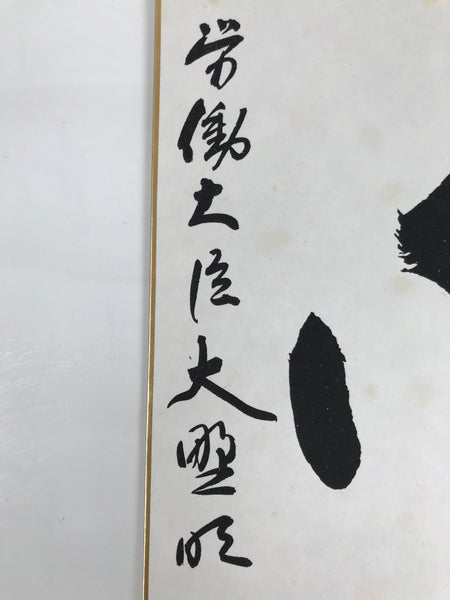 労働大臣大野明